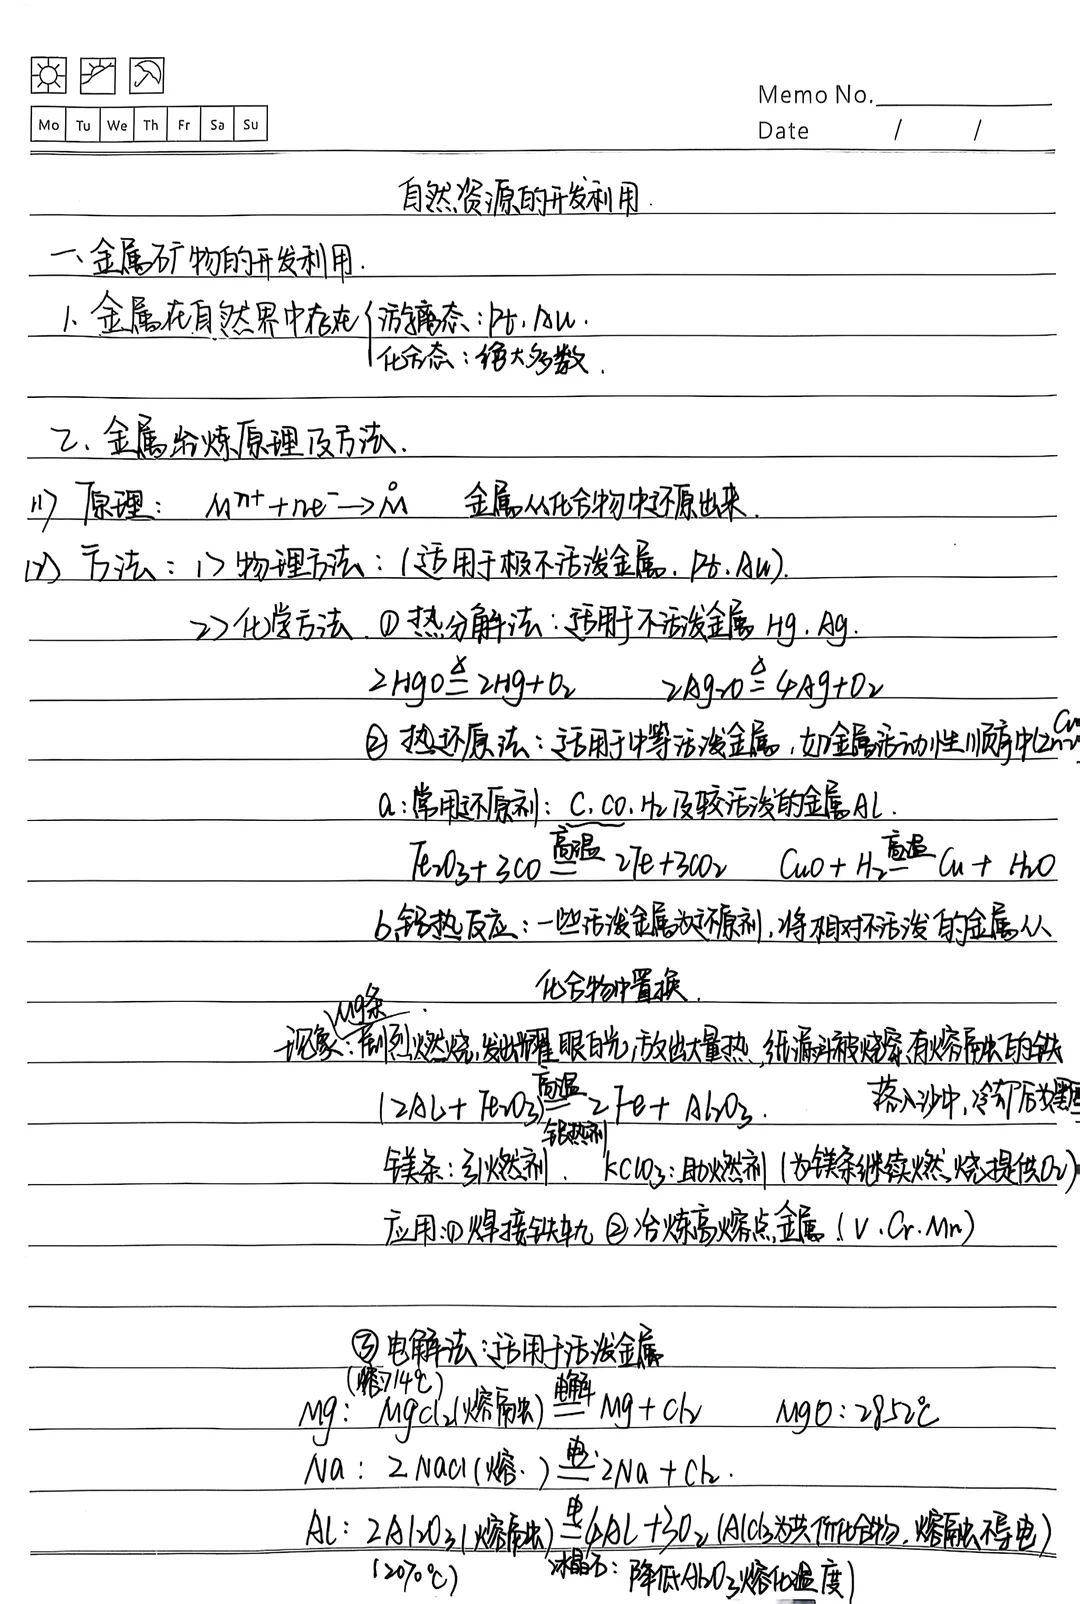 Memo No.
Mo Tu We Th Fr Sa Su
Date / /
自然资源的开发利用.
一、金属矿物的开发利用.
1、金属在自然界中存在{游离态:Pt、Au.
化合态:绝大多数.
2、金属冶炼原理及方法.
(1) 原理: Mⁿ⁺+ne⁻→M⁰ 金属从化合物中还原出来.
(2) 方法:1>物理方法:(适用于极不活泼金属.Pt、Au).
2>化学方法.①热分解法:适用于不活泼金属 Hg.Ag.
2HgO=△=2Hg+O₂ 2Ag₂O=△=4Ag+O₂
②热还原法:适用于中等活泼金属,如金属活动性顺序中(Zn~Cu
a:常用还原剂:C、CO、H₂及较活泼的金属AL.
Fe₂O₃+3CO=高温=2Fe+3CO₂ CuO+H₂=高温=Cu+H₂O
b.铝热反应:一些活泼金属为还原剂,将相对不活泼的金属从
化合物中置换.
Mg条
现象:剧烈燃烧,发出耀眼白光,放出大量热,纸漏斗被烧穿,有熔融的铁
落入沙中,冷却后为黑
(2AL+Fe₂O₃)=高温=2Fe+Al₂O₃.
铝热剂
镁条:引燃剂. KClO₃:助燃剂(为镁条继续燃烧提供O₂)
应用:①焊接铁轨 ②冶炼高熔点金属(V.Cr.Mn)
③电解法:适用于活泼金属
(熔714℃)
Mg: MgCl₂(熔融)=电解=Mg+Cl₂ MgO:2852℃
Na: 2NaCl(熔.)=电.=2Na+Cl₂.
AL: 2Al₂O₃(熔融)=电=4AL+3O₂(AlCl₃为共价化合物,熔融不导电)
(2070℃) 冰晶石:降低Al₂O₃熔化温度)